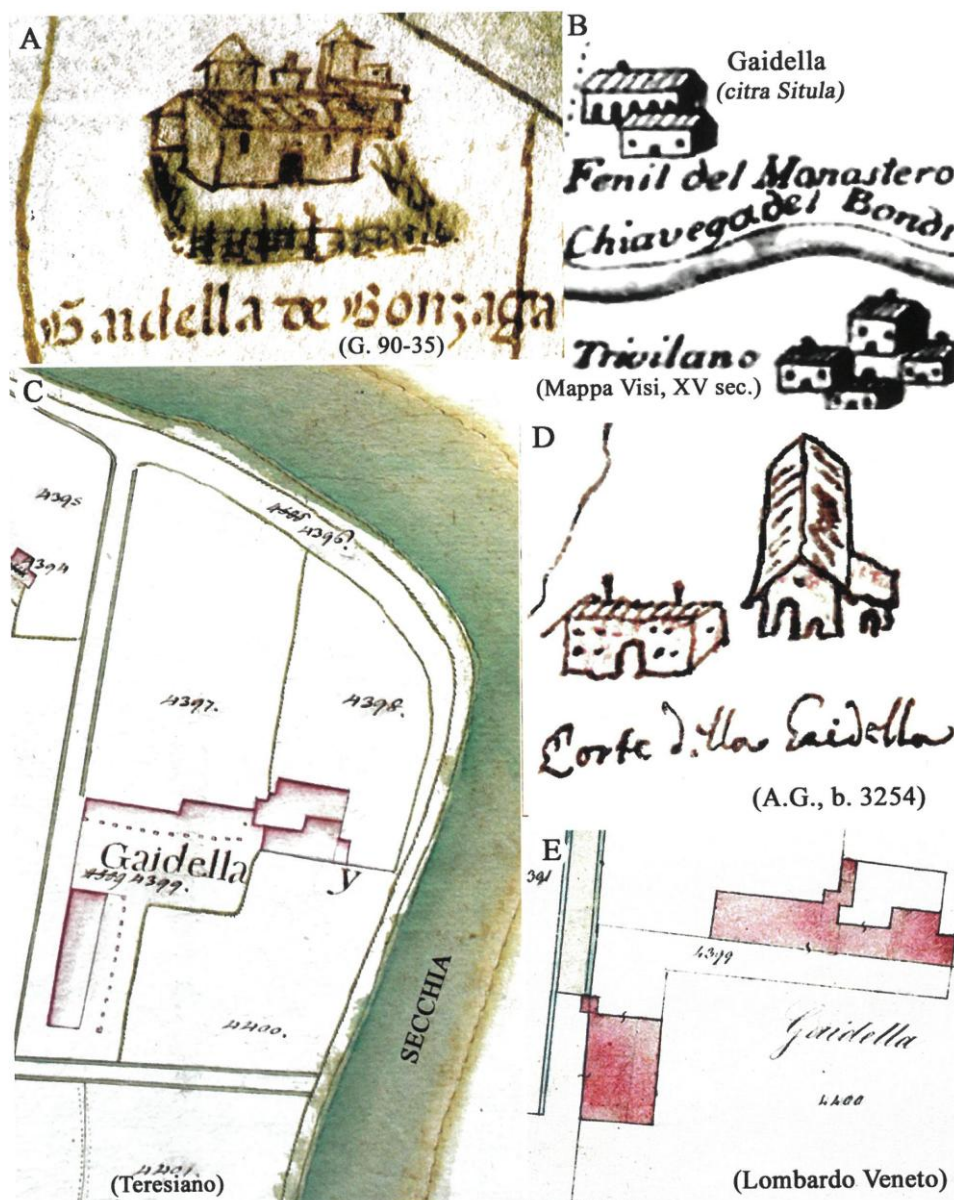 A
Gaidella de Gonzaga
(G. 90-35)
B
Gaidella
(citra Situla)
Fenil del Monastero
Chiavega del Bondi
Trivilano
(Mappa Visi, XV sec.)
C
4395
4394
4396.
4397.
4398.
Gaidella
4399.
y
4400.
SECCHIA
4401.
(Teresiano)
D
Corte della Gaidella
(A.G., b. 3254)
E
391
4399
Gaidella
4400
(Lombardo Veneto)